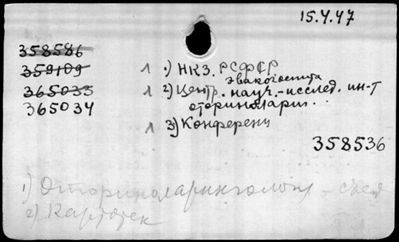 15.4.47
358586
359109
365033
365034
1 1) НКЗ. РСФСР
эвакогоспита
1 2) Центр. науч.-исслед. ин-т
оториноларинг..
1 3) Конференц
358536
1) Оториноларингология - съезд
2) Картотек